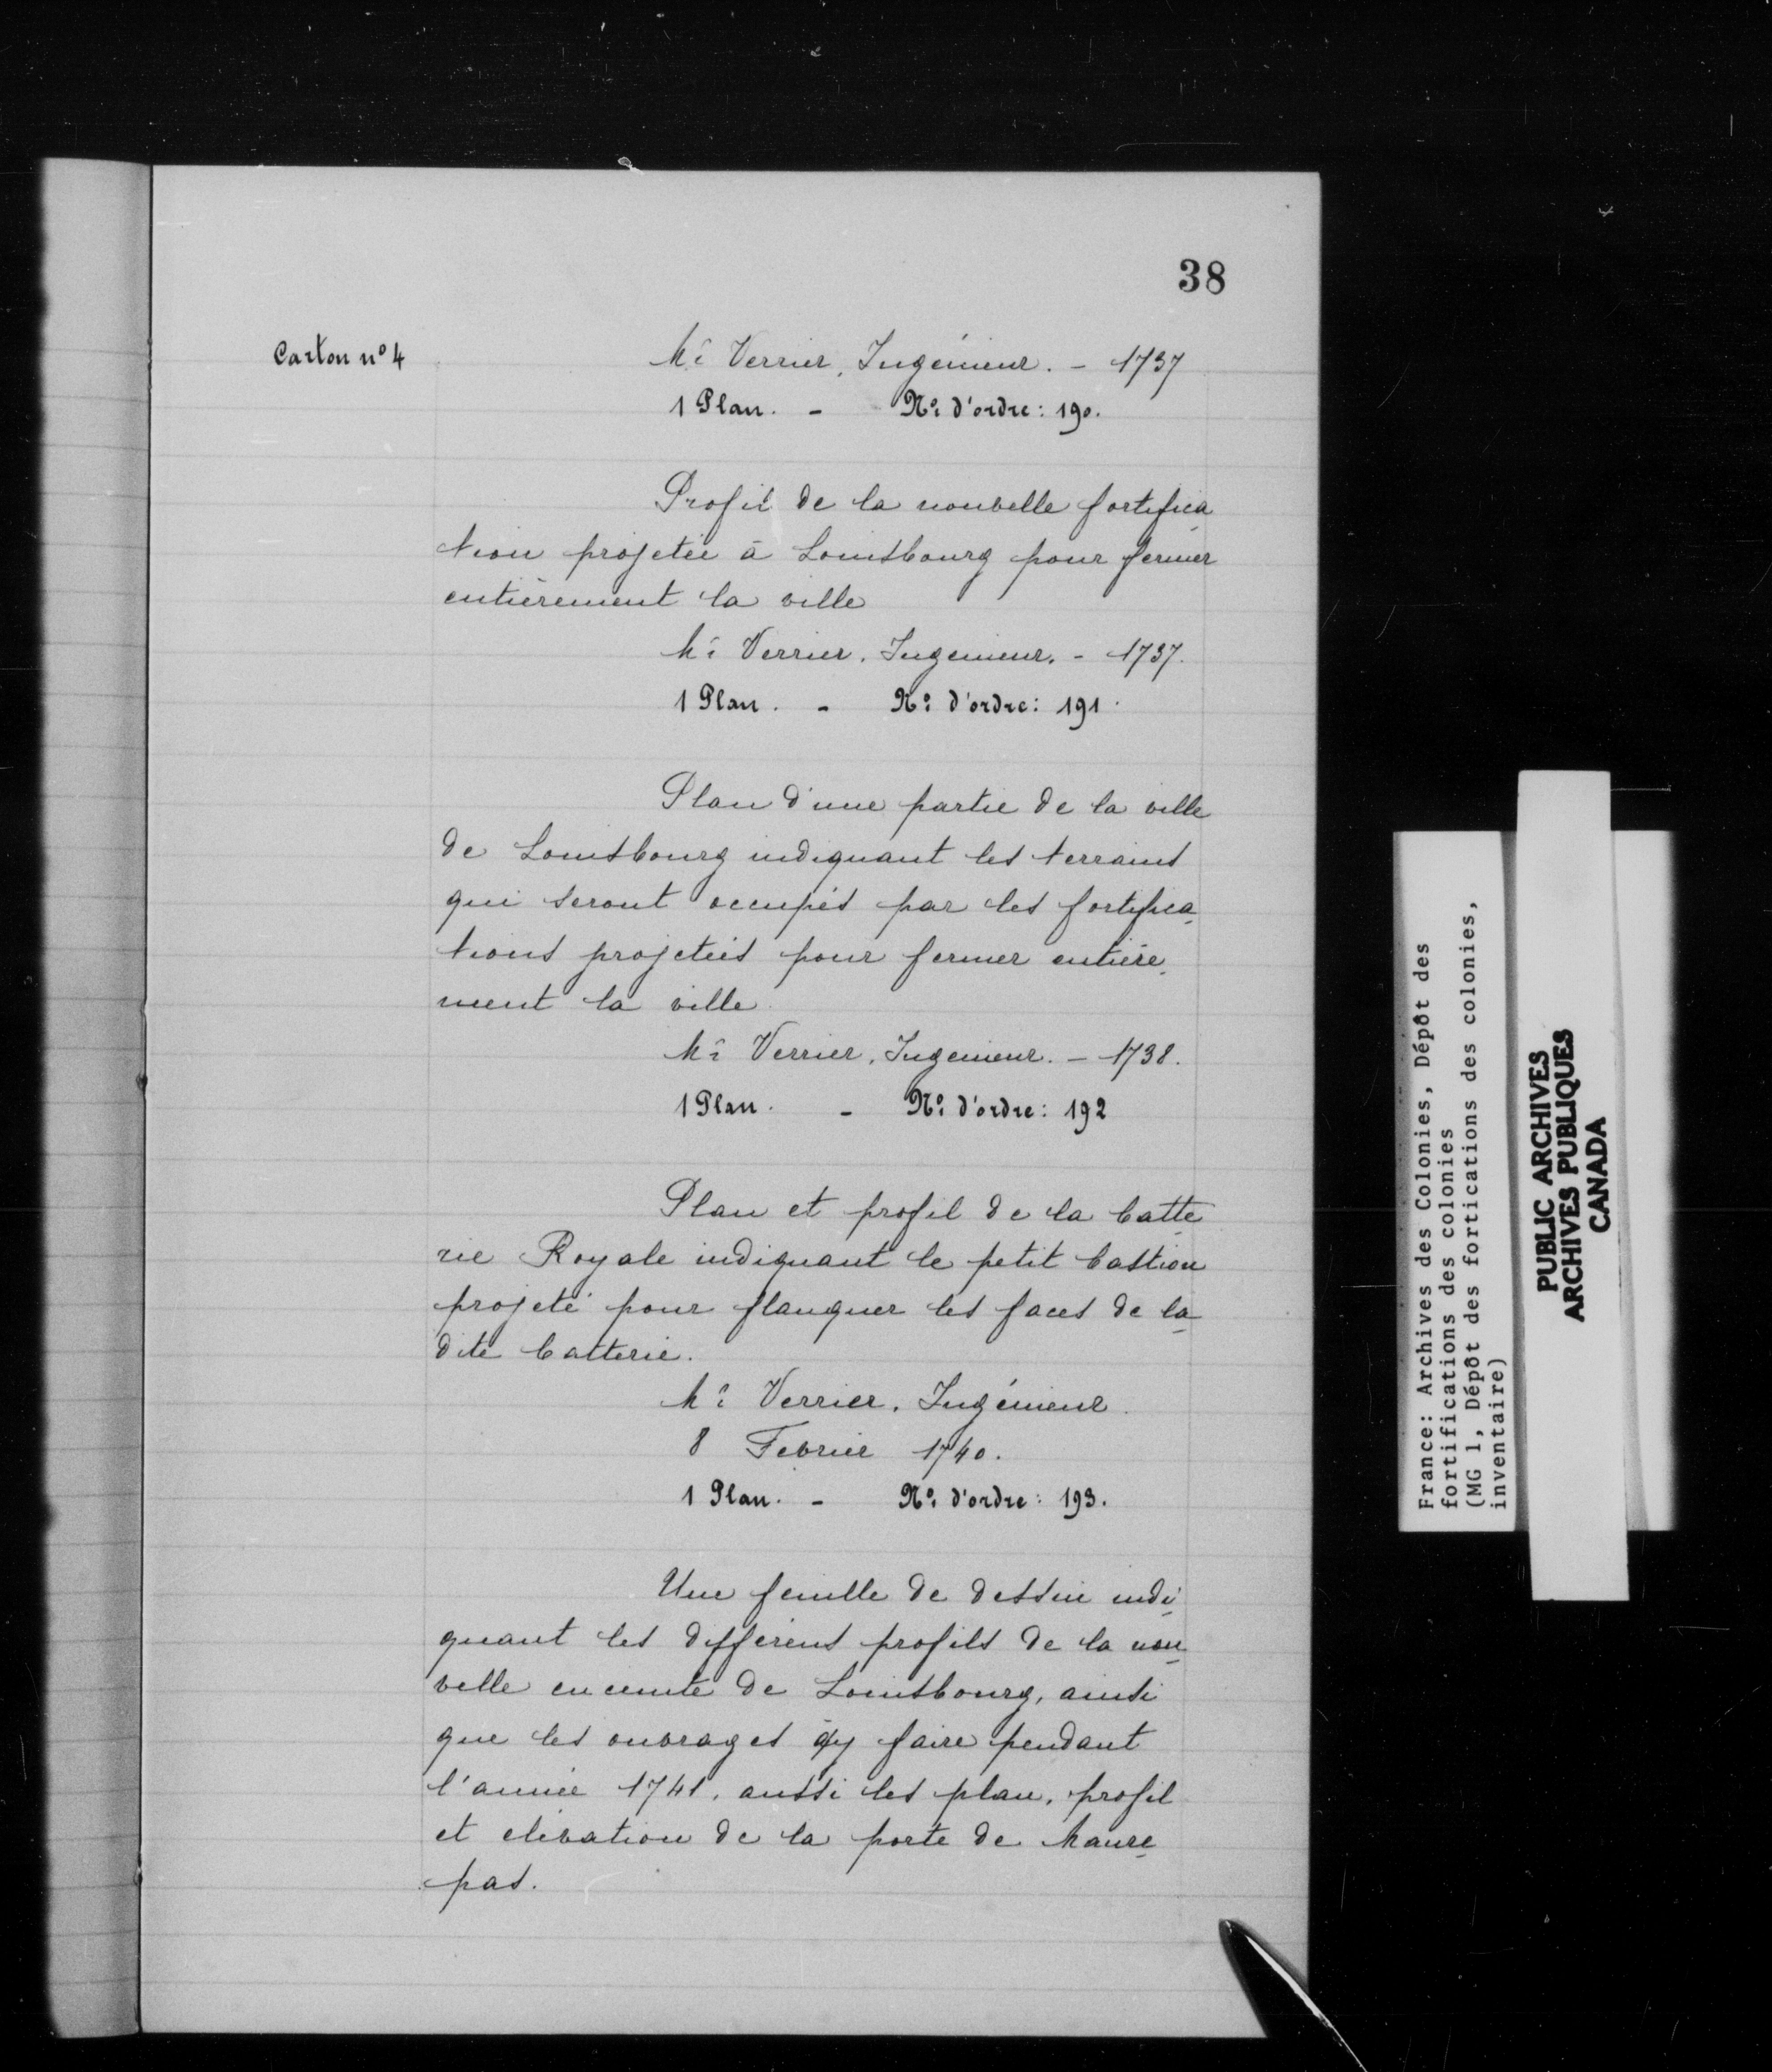 38
Carton nº 4
Mr Verrier, Ingénieur. - 1737
1 Plan. - Nº: d'ordre: 190.
Profil de la nouvelle fortifica
tion projetée à Louisbourg pour fermer
entièrement la ville
Mr Verrier. Ingenieur. - 1737.
1 Plan. - Nº: d'ordre: 191.
Plan d'une partie de la ville
de Louisbourg indiquant les terrains
qui seront occupés par les fortifica
tions projetées pour fermer entière
ment la ville
Mr Verrier. Ingenieur. - 1738.
1 Plan. - Nº: d'ordre: 192
Plan et profil de la batte
rie Royale indiquant le petit bastion
projeté pour flanquer les faces de la
dite batterie.
Mr Verrier. Ingénieur.
8 Febrier 1740.
1 Plan. - Nº: d'ordre: 193.
Une feuille de dessin indi
quant les différens profils de la nou
velle enceinte de Louisbourg, ainsi
que les ouvrages à y faire pendant
l'année 1741, aussi les plan, profil
et elévation de la porte de Maure
pas.
France: Archives des Colonies, Dépôt des
fortifications des colonies
(MG 1, Dépôt des fortications des colonies,
inventaire)
PUBLIC ARCHIVES
ARCHIVES PUBLIQUES
CANADA